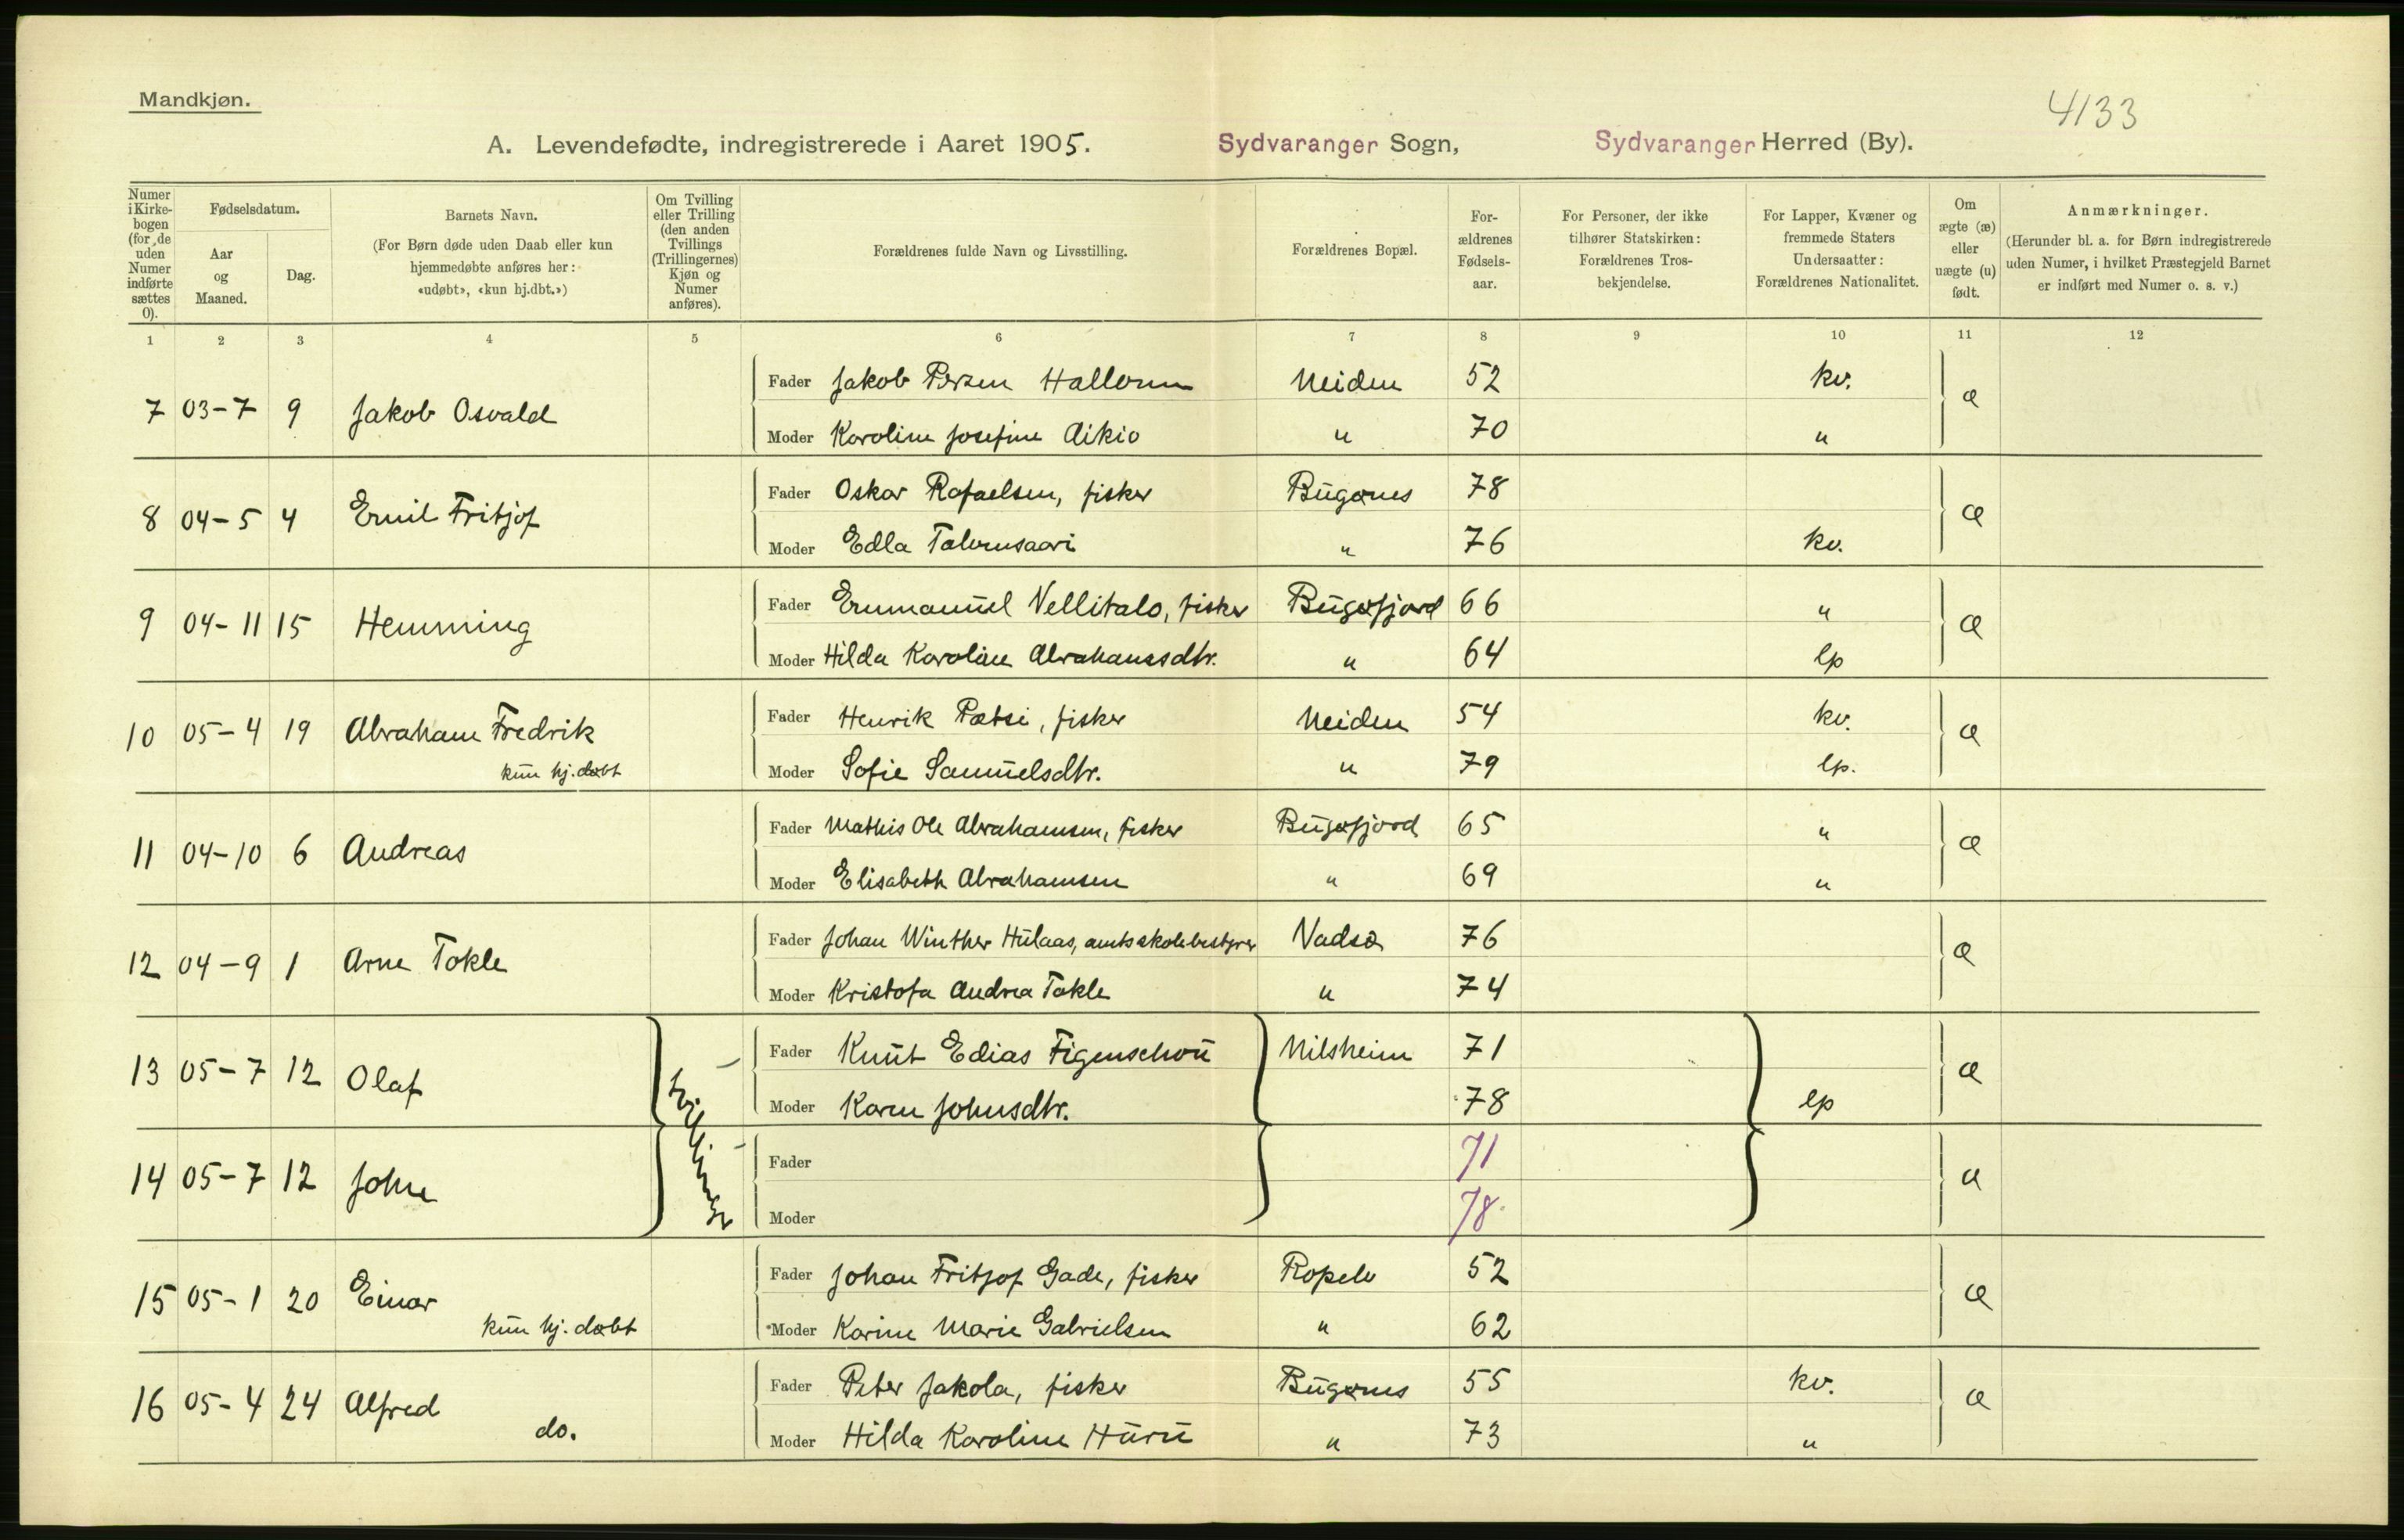 Mandkjøn.
4133
A. Levendefødte, indregistrerede i Aaret 1905. Sydvaranger Sogn, Sydvaranger Herred (By).
Numer i Kirkebogen (for de uden Numer indførte sættes 0).
Fødselsdatum.
Aar og Maaned.
Dag.
Barnets Navn.
(For Børn døde uden Daab eller kun hjemmedøbte anføres her: «udøbt», «kun hj.dbt.»)
Om Tvilling eller Trilling (den anden Tvillings (Trillingernes) Kjøn og Numer anføres).
Forældrenes fulde Navn og Livsstilling.
Forældrenes Bopæl.
Forældrenes Fødselsaar.
For Personer, der ikke tilhører Statskirken: Forældrenes Trosbekjendelse.
For Lapper, Kvæner og fremmede Staters Undersaatter: Forældrenes Nationalitet.
Om ægte (æ) eller uægte (u) født.
Anmærkninger.
(Herunder bl. a. for Børn indregistrerede uden Numer, i hvilket Præstegjeld Barnet er indført med Numer o. s. v.)
1 2 3 4 5 6 7 8 9 10 11 12
7 03-7 9 Jakob Osvald Fader Jakob Persen Neiden 52 kv. æ
Moder Karoline Josefine Aikio " 70 "
8 04-5 4 Emil Fritjof Fader Oskar Rafaelsen, fisker Bugønes 78 æ
Moder Edla " 76 kv.
9 04-11 15 Hemming Fader Emmanuel Vellitalo, fisker Bugøfjord 66 " æ
Moder Hilda Karoline Abrahamsdtr. " 64 lp
10 05-4 19 Abraham Fredrik Fader Henrik Pætsi, fisker Neiden 54 kv. æ
kun hj. døbt Moder Sofie Samuelsdtr. " 79 lp.
11 04-10 6 Andreas Fader Mathis Ole Abrahamsen, fisker Bugøfjord 65 " æ
Moder Elisabeth Abrahamsen " 69 "
12 04-9 1 Arne Takle Fader Johan Winther Hulaas, amtsskolebestyrer Vadsø 76 æ
Moder Kristofa Andrea Takle " 74
13 05-7 12 Olaf tvillinger Fader Knut Edias Figenschou Nilsheim 71 æ
Moder Karen Johnsdtr. 78 lp
14 05-7 12 John Fader 71 æ
Moder 78
15 05-1 20 Einar Fader Johan Fritjof Gade, fisker Ropelv 52 æ
kun hj. døbt Moder Karine Marie Gabrielsen " 62
16 05-4 24 Alfred Fader Peter Jakola, fisker Bugønes 55 kv. æ
do. Moder Hilda Karoline Huru " 73 "